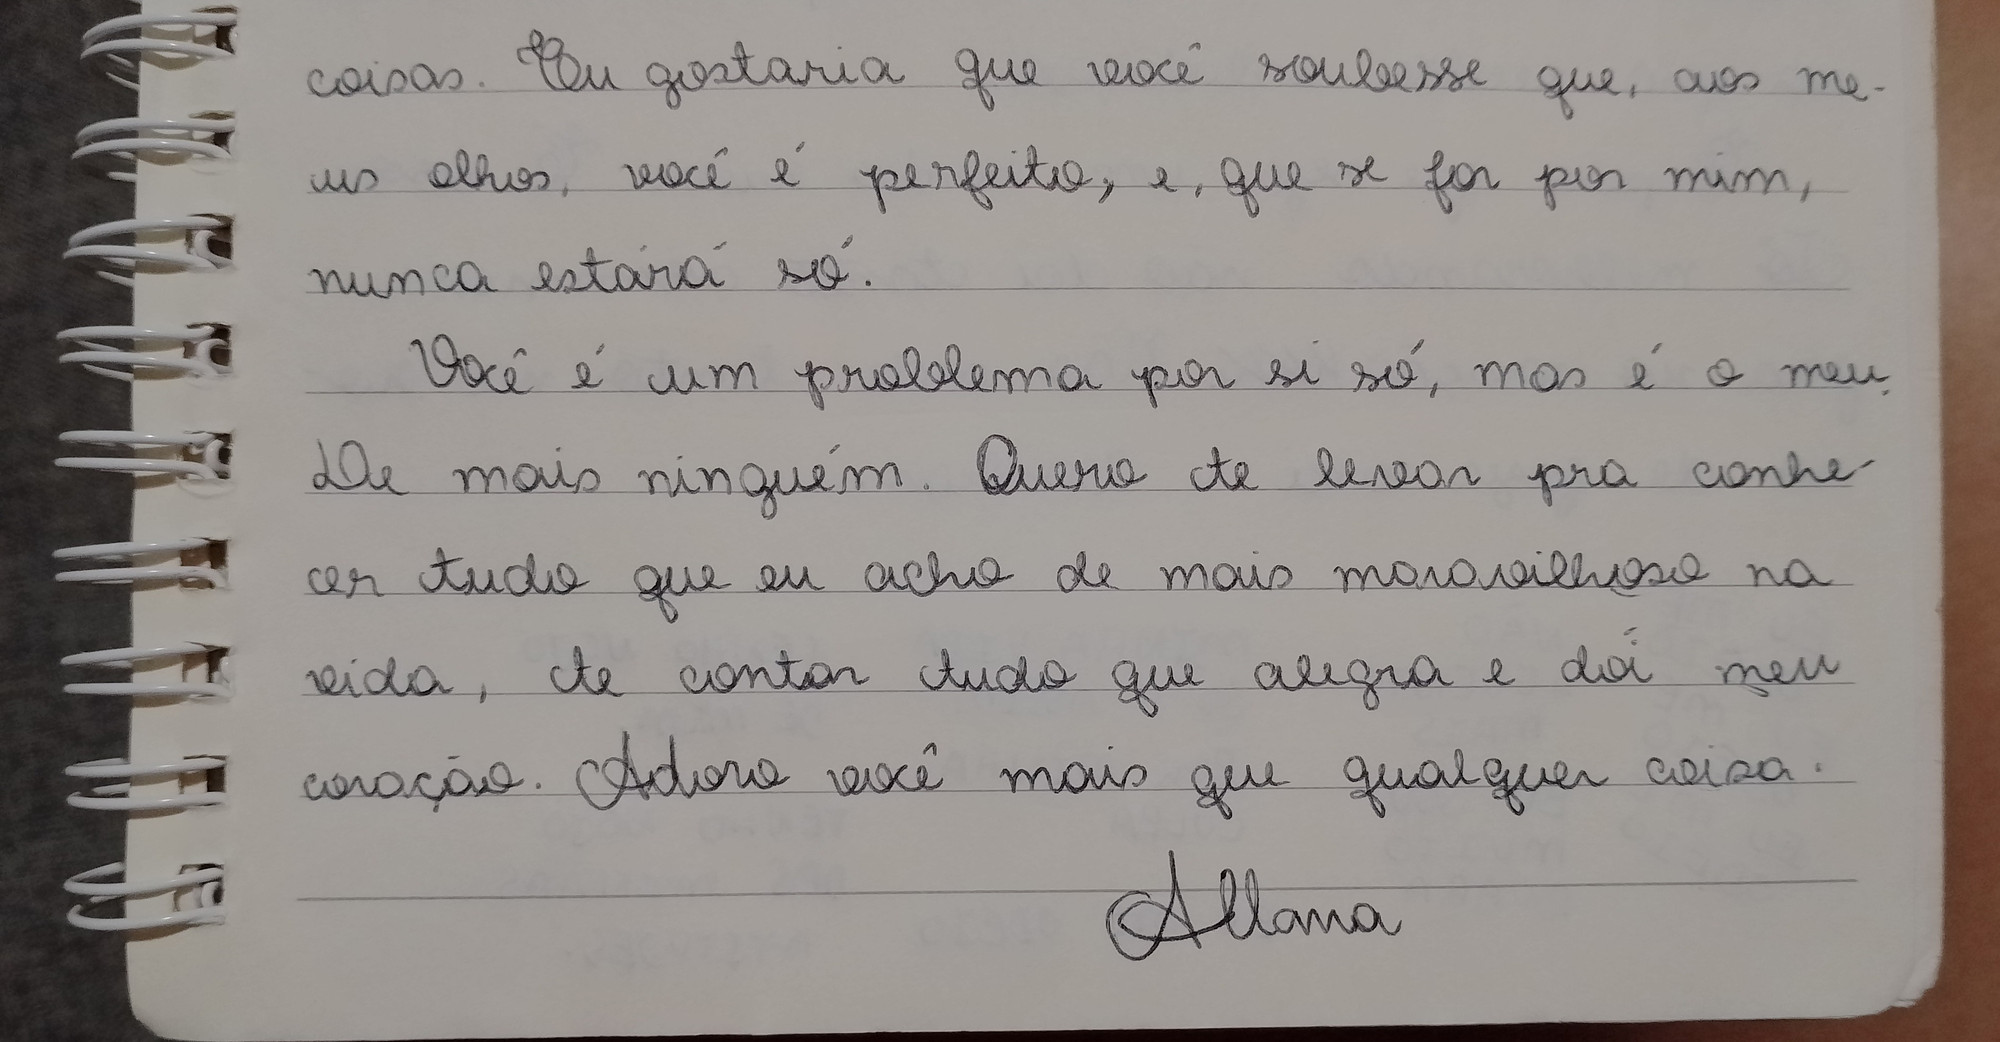 coisas. Eu gostaria que você soubesse que, aos me-
us olhos, você é perfeito, e, que se for por mim,
nunca estará só.
Você é um problema por si só, mas é o meu.
De mais ninguém. Quero te levar pra conhe-
cer tudo que eu acho de mais maravilhoso na
vida, te contar tudo que alegra e dói meu
coração. Adoro você mais que qualquer coisa.
Allana